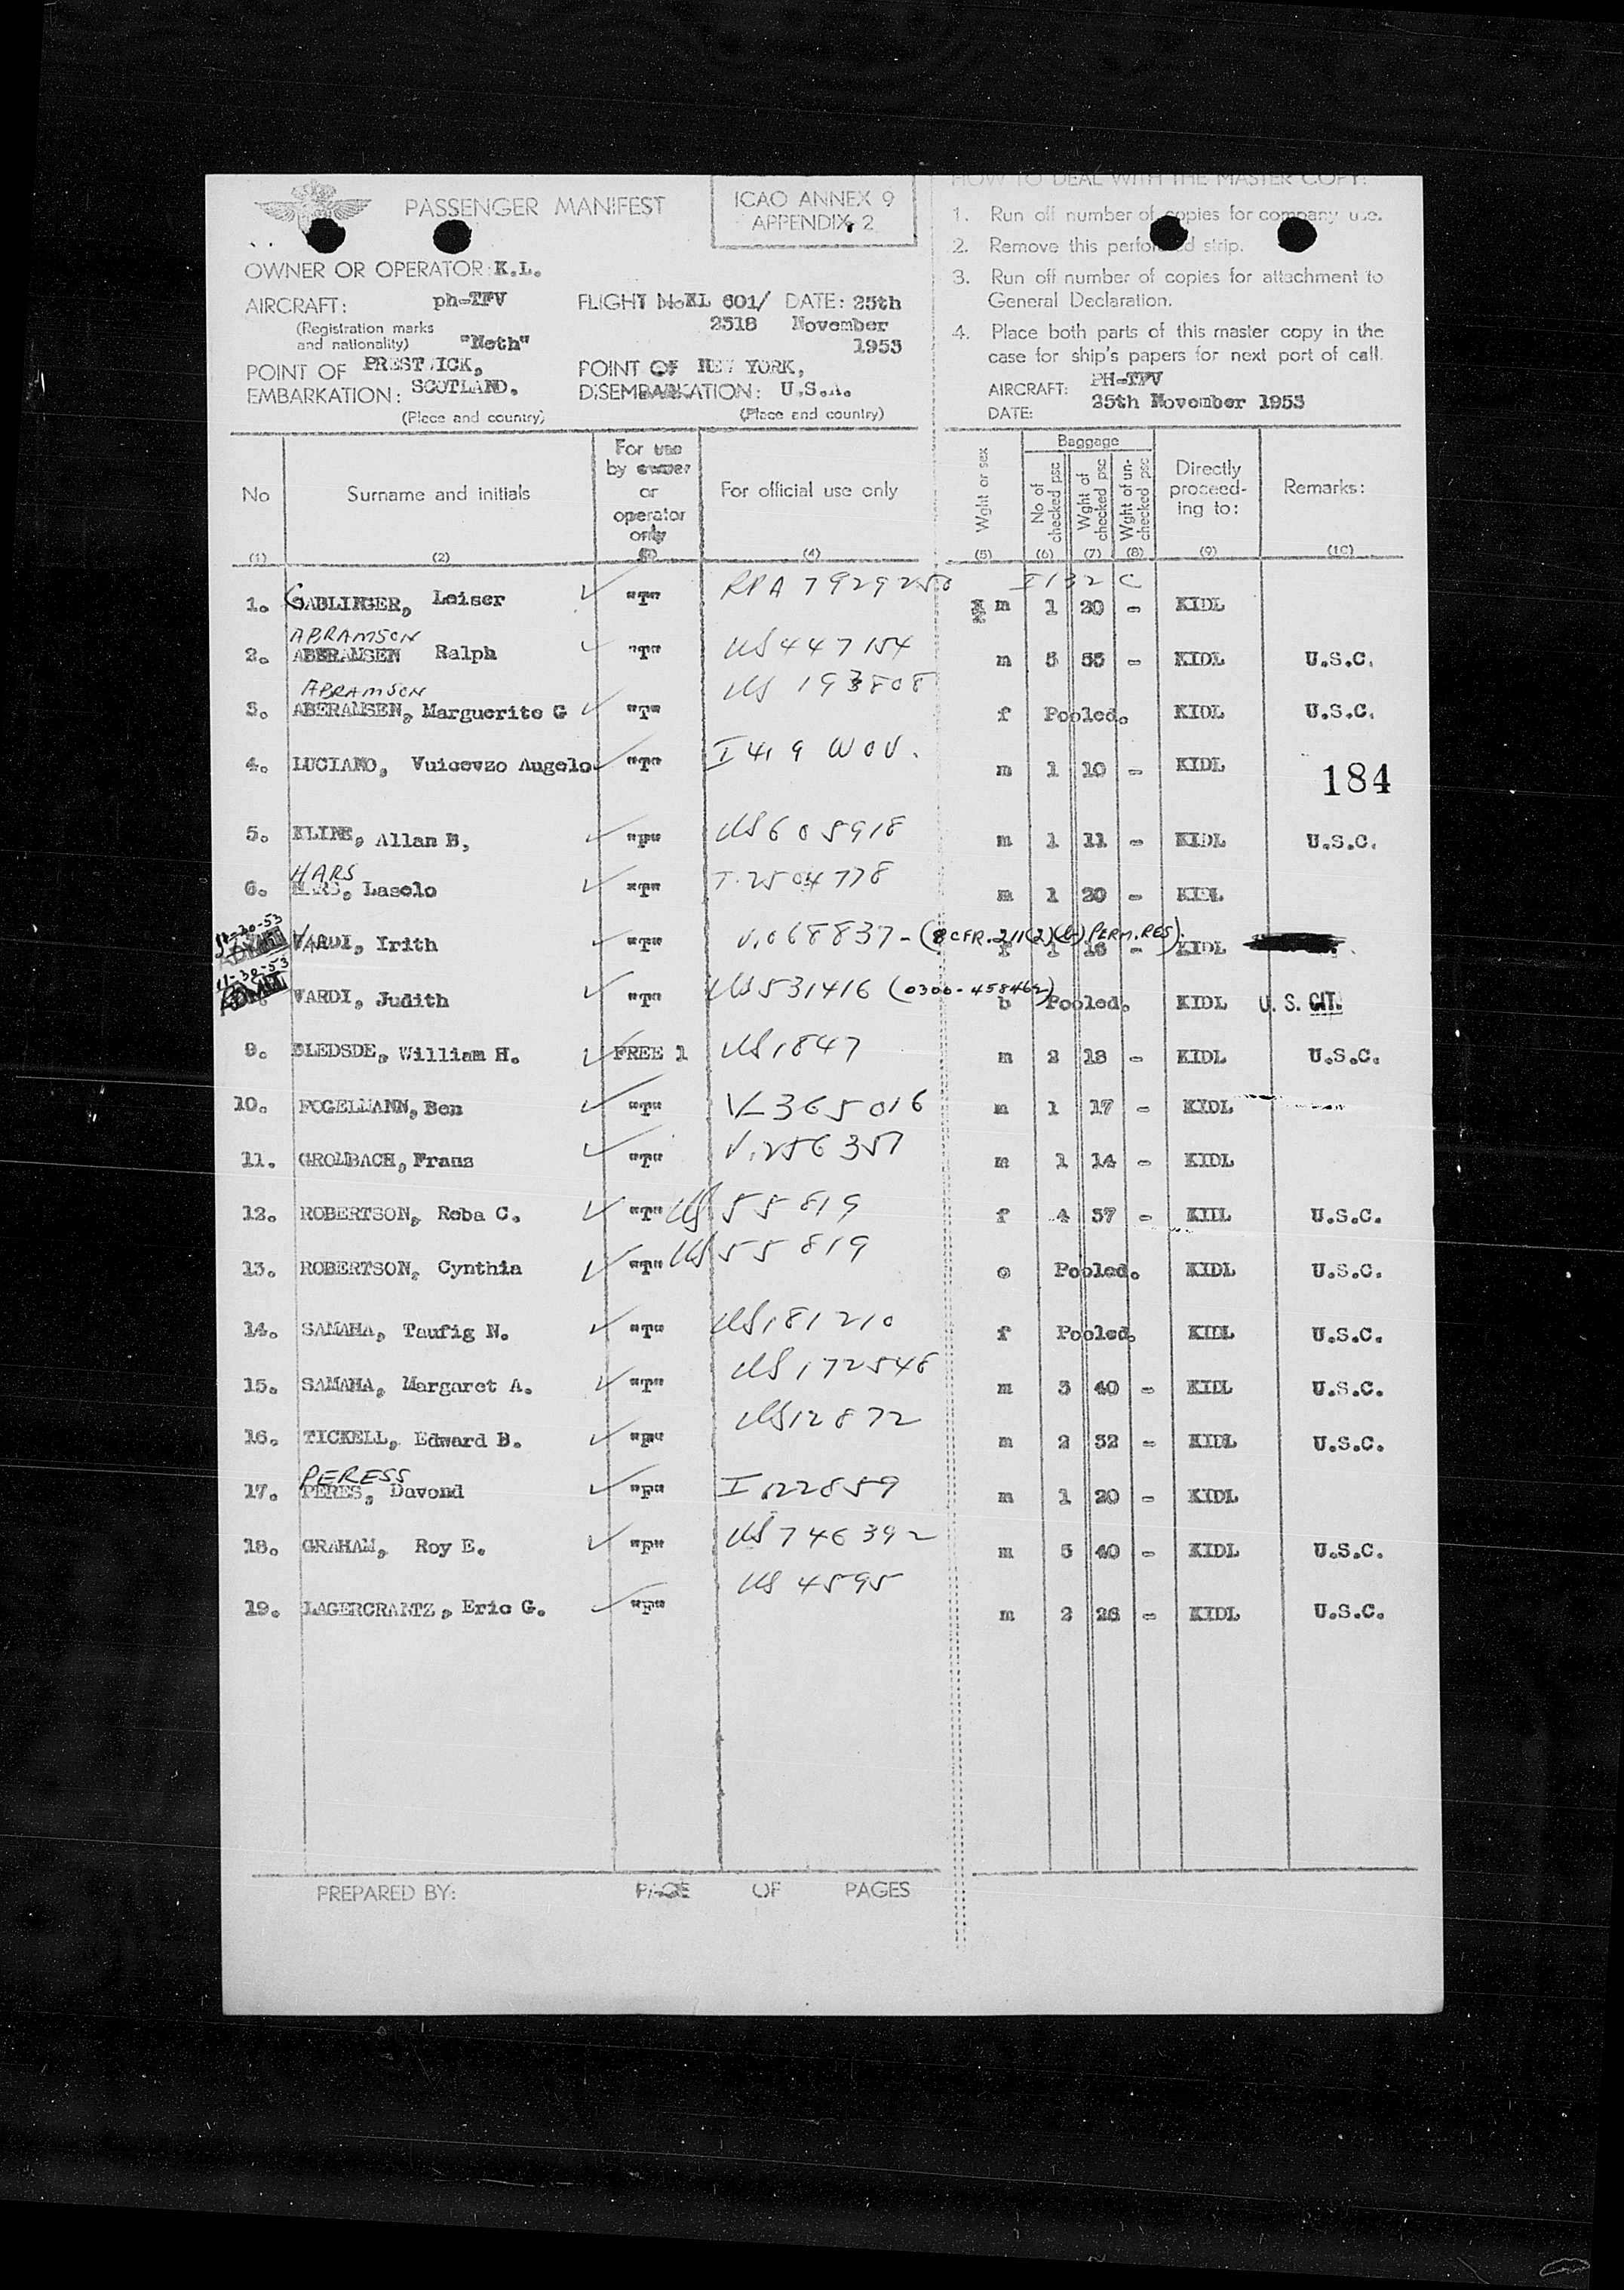 PASSENGER MANIFEST
ICAO ANNEX 9
APPENDIX 2
HOW TO DEAL WITH THE MASTER COPY:
1. Run off number of copies for company use.
2. Remove this perforated strip.
3. Run off number of copies for attachment to
General Declaration.
4. Place both parts of this master copy in the
case for ship's papers for next port of call.
AIRCRAFT: PH-TFV
DATE: 25th November 1953
OWNER OR OPERATOR: K.L.
AIRCRAFT: ph-TFV FLIGHT No KL 601/ DATE: 25th
(Registration marks 2518 November
and nationality) "Neth" 1953
POINT OF PRESTWICK, POINT OF NEW YORK,
EMBARKATION: SCOTLAND. DISEMBARKATION: U.S.A.
(Place and country) (Place and country)
No Surname and initials For use by owner or operator only For official use only Wght or sex Baggage No of checked psc Wght of checked psc Wght of un-checked psc Directly proceed-ing to: Remarks:
(1) (2) (3) (4) (5) (6) (7) (8) (9) (10)
1. GABLINGER, Leiser "T" RPA 7929250 I 132 C m 1 20 - KIDL
ABRAMSON
2. ABERAMSEN Ralph "T" US 447154 m 5 55 - KIDL U.S.C.
ABRAMSON
3. ABERAMSEN, Marguerite G "T" US 193808 f Pooled. KIDL U.S.C.
4. LUCIANO, Vuicevzo Augelo "T" I 419 WOV. m 1 10 - KIDL
184
5. KLINE, Allan B, "F" US 605918 m 1 11 - KIDL U.S.C.
HARS
6. Laselo "T" T-2504778 m 1 20 - KIDL
11-30-53
VARDI, Irith "T" V.068837 - (8 CFR.211(2)(b) PERM.RES). f 1 16 - KIDL
11-30-53
VARDI, Judith "T" US 531416 (0300-458462) b Pooled. KIDL U. S. CIT.
9. BLEDSDE, William H. FREE 1 US 1847 m 2 18 - KIDL U.S.C.
10. FOGELMANN, Ben "T" V-365016 m 1 17 - KIDL
11. GROMBACH, Franz "T" V.256357 m 1 14 - KIDL
12. ROBERTSON, Reba C. "T" US 55819 f 4 57 - KIDL U.S.C.
13. ROBERTSON, Cynthia "T" US 55819 c Pooled. KIDL U.S.C.
14. SAMAHA, Taufig N. "T" US 181210 f Pooled. KIDL U.S.C.
15. SAMAHA, Margaret A. "T" US 172548 m 3 40 - KIDL U.S.C.
16. TICKELL, Edward B. "F" US 12872 m 2 32 - KIDL U.S.C.
PERESS
17. PERES, Davond "F" I 122859 m 1 20 - KIDL
18. GRAHAM, Roy E. "F" US 746392 m 5 40 - KIDL U.S.C.
19. LAGERCRANTZ, Eric G. "F" US 4595 m 2 26 - KIDL U.S.C.
PREPARED BY: PAGE OF PAGES